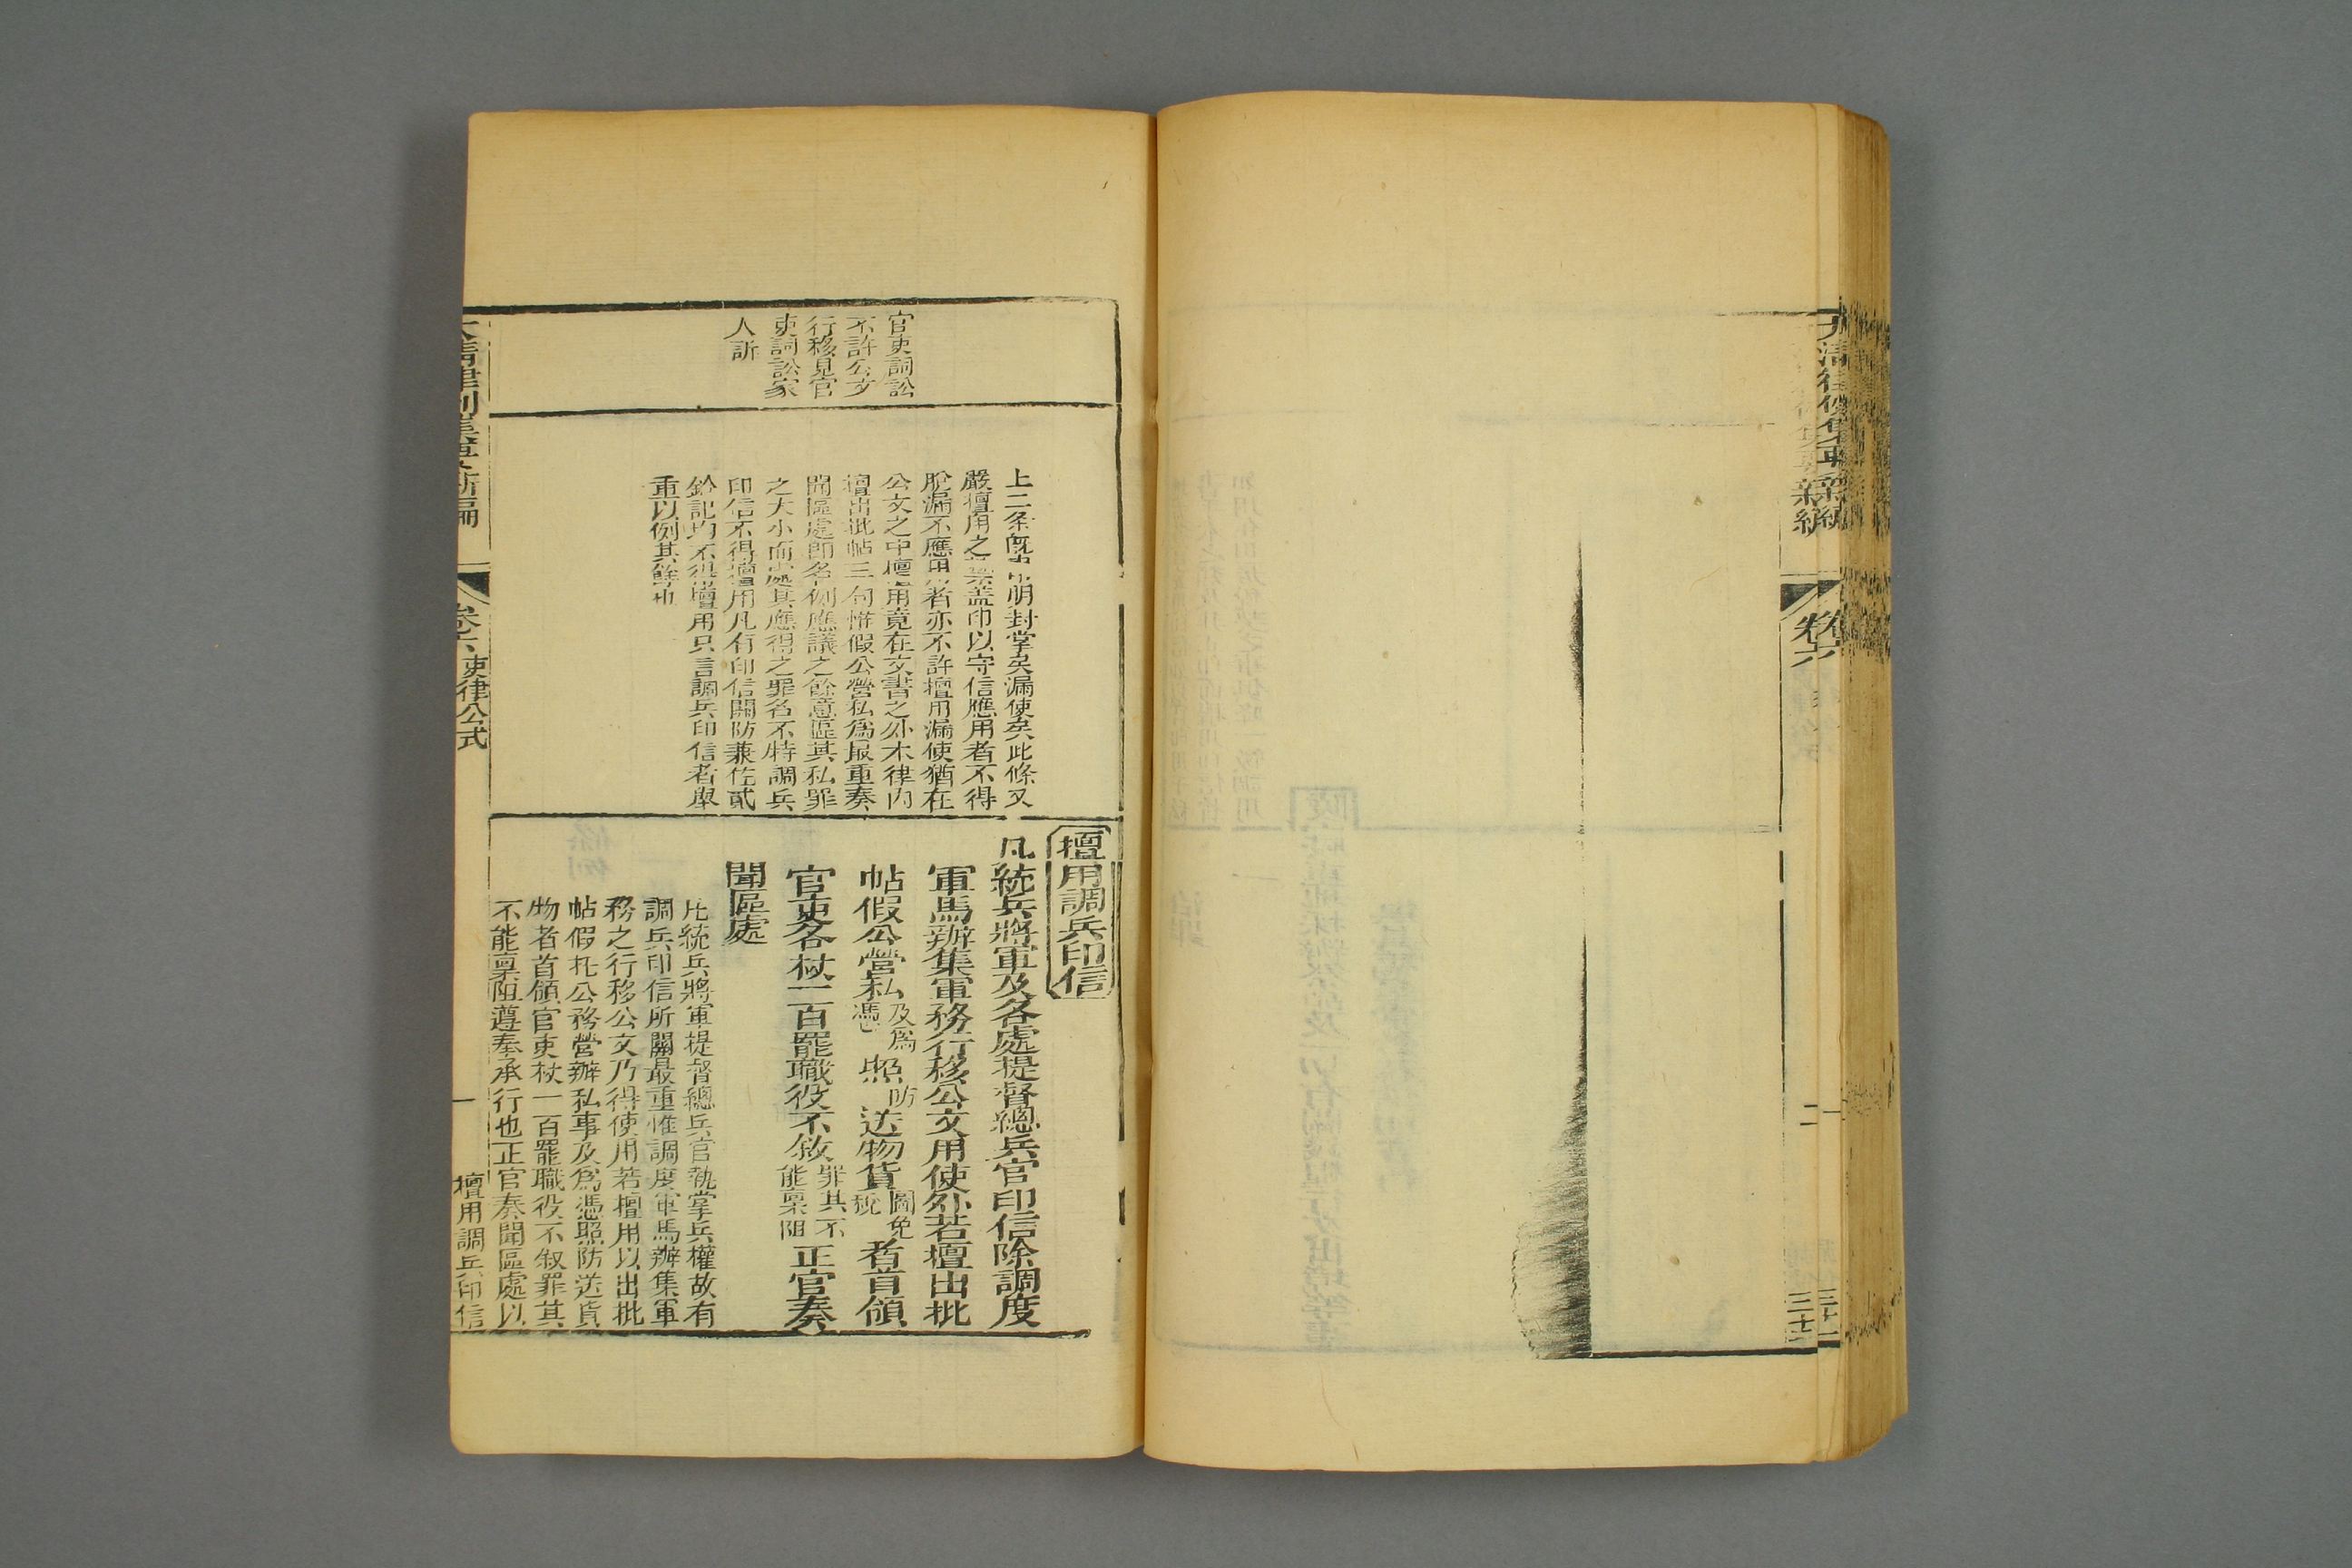 大清律例彙輯新編
卷六
三十一
官吏詞訟
不許公文
行移見官
吏詞訟家
人訴
上二条既申明封掌矣漏使矣此條又
嚴擅用之禁盖印以守信應用者不得
脫漏不應用者亦不許擅用漏使猶在
公文之中擅用竟在文書之外本律內
擅出批帖三句惟假公營私爲最重奏
聞區處卽名例應議之餘意區其私罪
之大小而處其應得之罪名不特調兵
印信不得擅用凡有印信關防兼佐貳
鈐記均不得擅用只言調兵印信者舉
重以例其餘也
擅用調兵印信
凡統兵將軍及各處提督總兵官印信除調度
軍馬辦集軍務行移公文用使外若擅出批
帖假公營私及爲憑照防送物貨圖免稅者首領
官吏各杖一百罷職役不敘罪其不能稟阻正官奏
聞區處
凡統兵將軍提督總兵官執掌兵權故有
調兵印信所關最重惟調度軍馬辦集軍
務之行移公文乃得使用若擅用以出批
帖假托公務營辦私事及爲憑照防送貨
物者首領官吏杖一百罷職役不叙罪其
不能稟阻遵奉承行也正官奏聞區處以
大清律例彙輯新編
卷六
吏律公式
一
擅用調兵印信